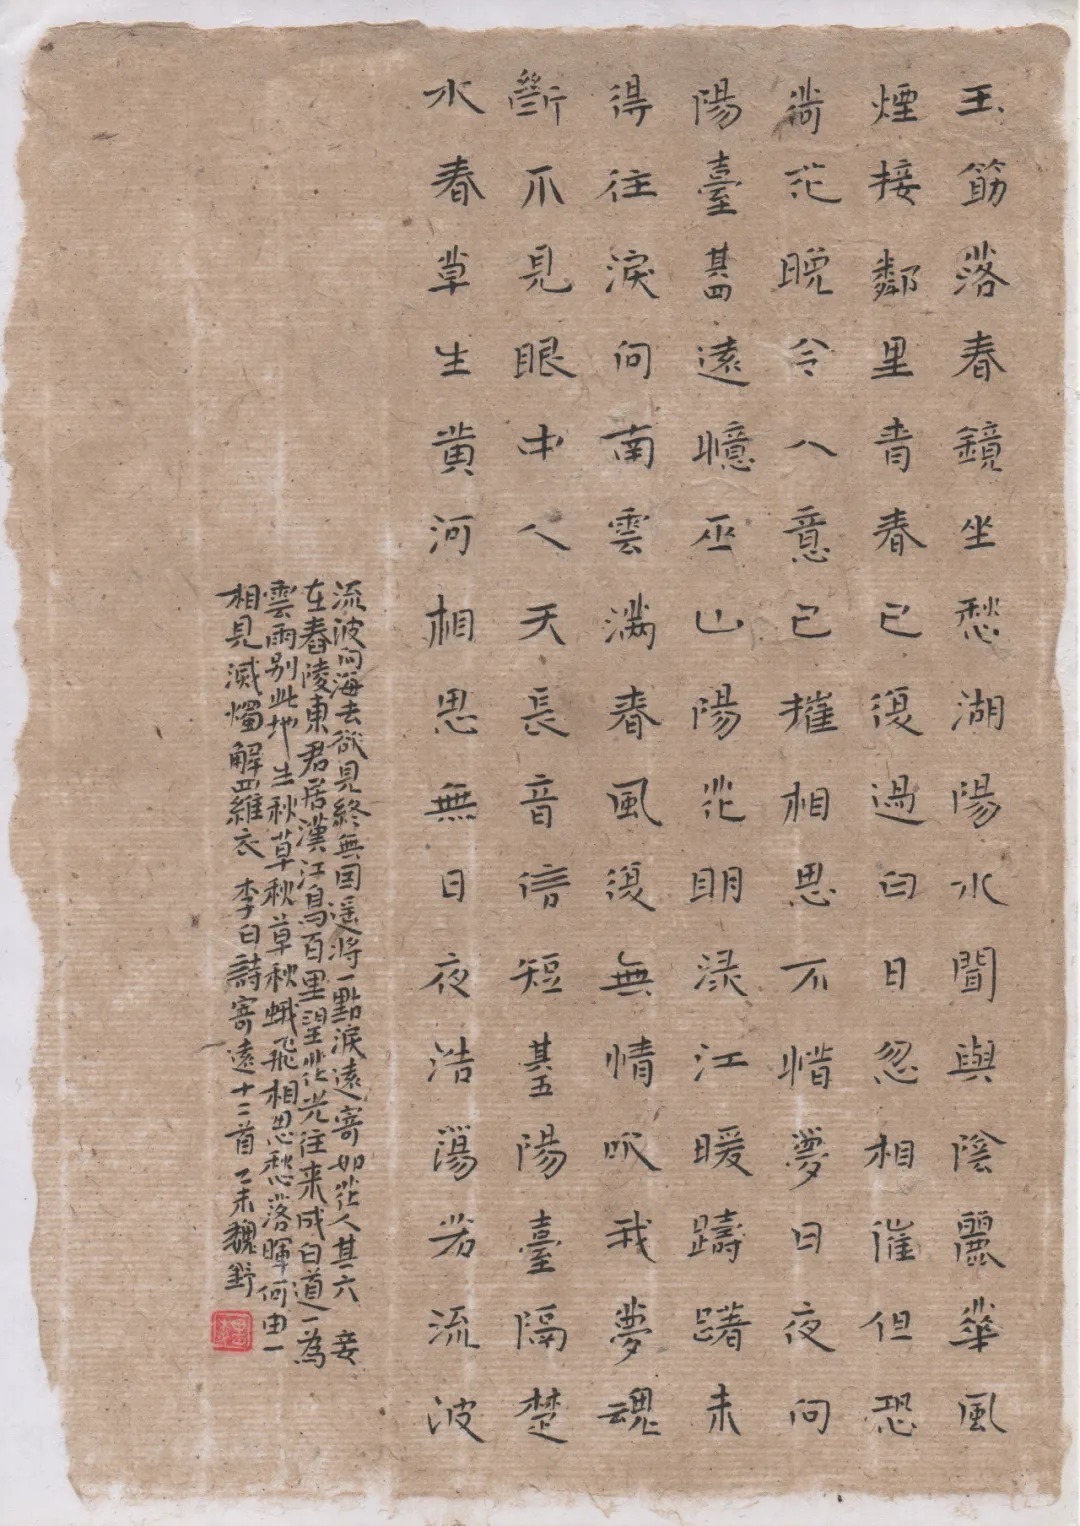 玉筯落春鏡坐愁湖陽水聞與陰麗華風
煙接鄰里青春已復過白日忽相催但恐
荷花晚令人意已摧相思不惜夢日夜向
陽臺其四遠憶巫山陽花明淥江暖躊躇未
得往淚向南雲滿春風復無情吹我夢魂
斷不見眼中人天長音信短其五陽臺隔楚
水春草生黃河相思無日夜浩蕩若流波
流波向海去欲見終無因遥將一點淚遠寄如花人其六 妾
在舂陵東君居漢江島百里望花光往来成白道一為
雲雨别此地生秋草秋草秋蛾飛相思愁落暉何由一
相見滅燭解羅衣 李白詩寄遠十二首 乙未魏野